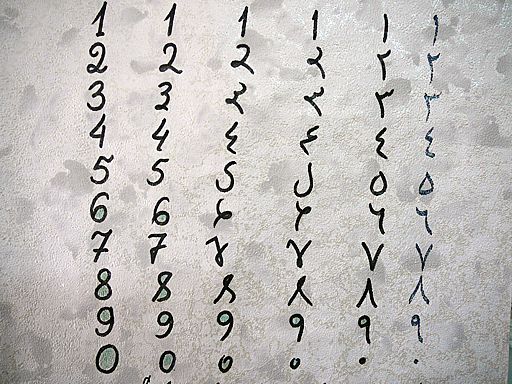 1 1 1 1 ١ ١
2 2 2 2 ٢ ٢
3 3 ٣ ٣ ٣ ٣
4 4 ٤ ٤ ٤ ٤
5 5 5 ٥ ٥
6 6 6 ٦ ٦ ٦
7 7 7 ٧ ٧ ٧
8 8 8 ٨ ٨ ٨
9 9 9 9 ٩ ٩
0 0 0 0 ٠ ٠